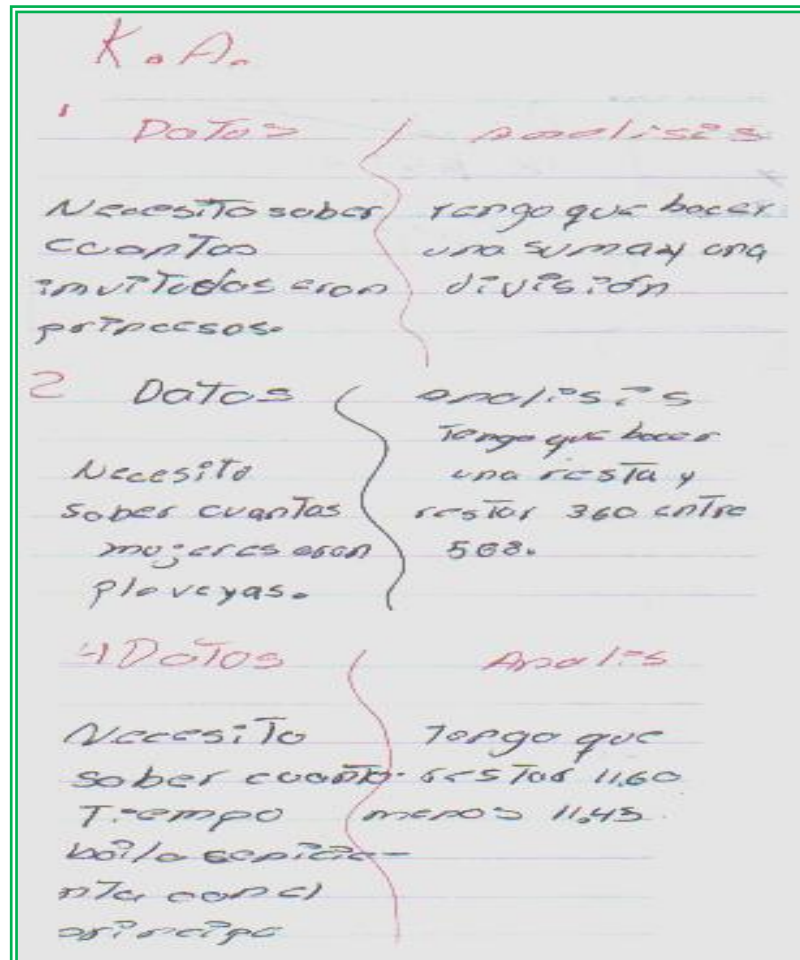 K.A.
1
Datos
analisis
Necesito saber
cuantos
invitados eran
princesas.
Tengo que hacer
una suma y una
división
2
Datos
analisis
Necesito
saber cuantas
mujeres eran
plaveyas.
Tengo que hacer
una resta y
restar 360 entre
568.
4 Datos
Analis
Necesito
saber cuanto
Tiempo
bailo cenicie-
nta con el
principe
Tengo que
restar 11.60
menos 11.45